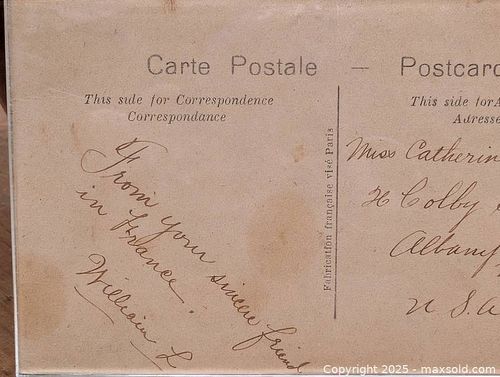 Carte Postale — Postcard
This side for Correspondence
Correspondance
This side for A
Adresse
Fabrication française visé Paris
From your sincere friend
in France.
William L
Miss Catherin
26 Colby
Albany
U S. A
Copyright 2025 - maxsold.com